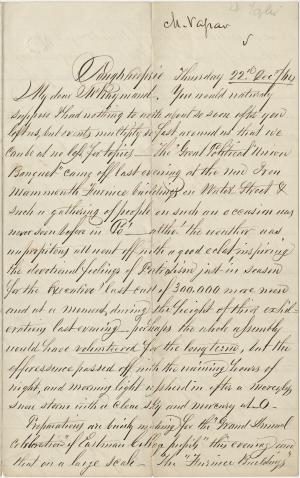 M. Vassar
Poughkeepsie Thursday 22nd Decr/64
My dear Mr Raymond. You would naturaly
suppose I had nothing to write about so soon after you
left us, but events multiply so fast around us that we
can be at no loss for topics — The "Great Political Union
Banquet" came off last evening at the new Iron
Mammouth Furnice buildings on Water Street &
such a gathering of people on such an occasion was
never seen before in Po! — altho' the weather was
unpropitous all went off with a good eclat, inspiring
the devotional feelings of Patriotism just in season
for the Executive' last call of 300,000 more men
and at a moment, during the height of the exhil-
erating last evening — perhaps the whole assembly
would have volunteered for the long term, but the
effervessence passed off with the waining hours of
night, and morning light upsherd in after a
snow storm with a clear sky and mercury at 0 —
Preparations are busily making for the "Grand Annual
Celebration" of Eastman College pupils" this evening and
that on a large scale — The "Furnice Buildings"